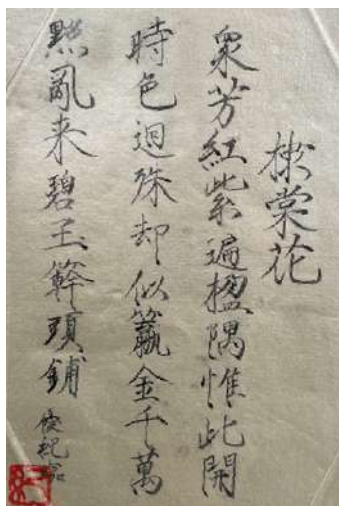 棣棠花
衆芳紅紫遍楹隅惟此開
時色逈殊却似籝金千萬
點亂来碧玉簳頭鋪